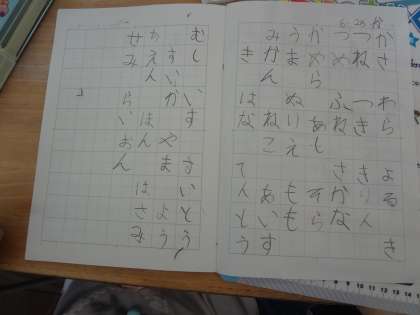 かさ わら よる
つね つき きりん
つめ ふね さかな
かめら あし そら
うま ぬりえ もも
みかん ねこ あいす
き はな てんとう
むし いす さいとう
すいか やま よう
せみ らいおん はさみ